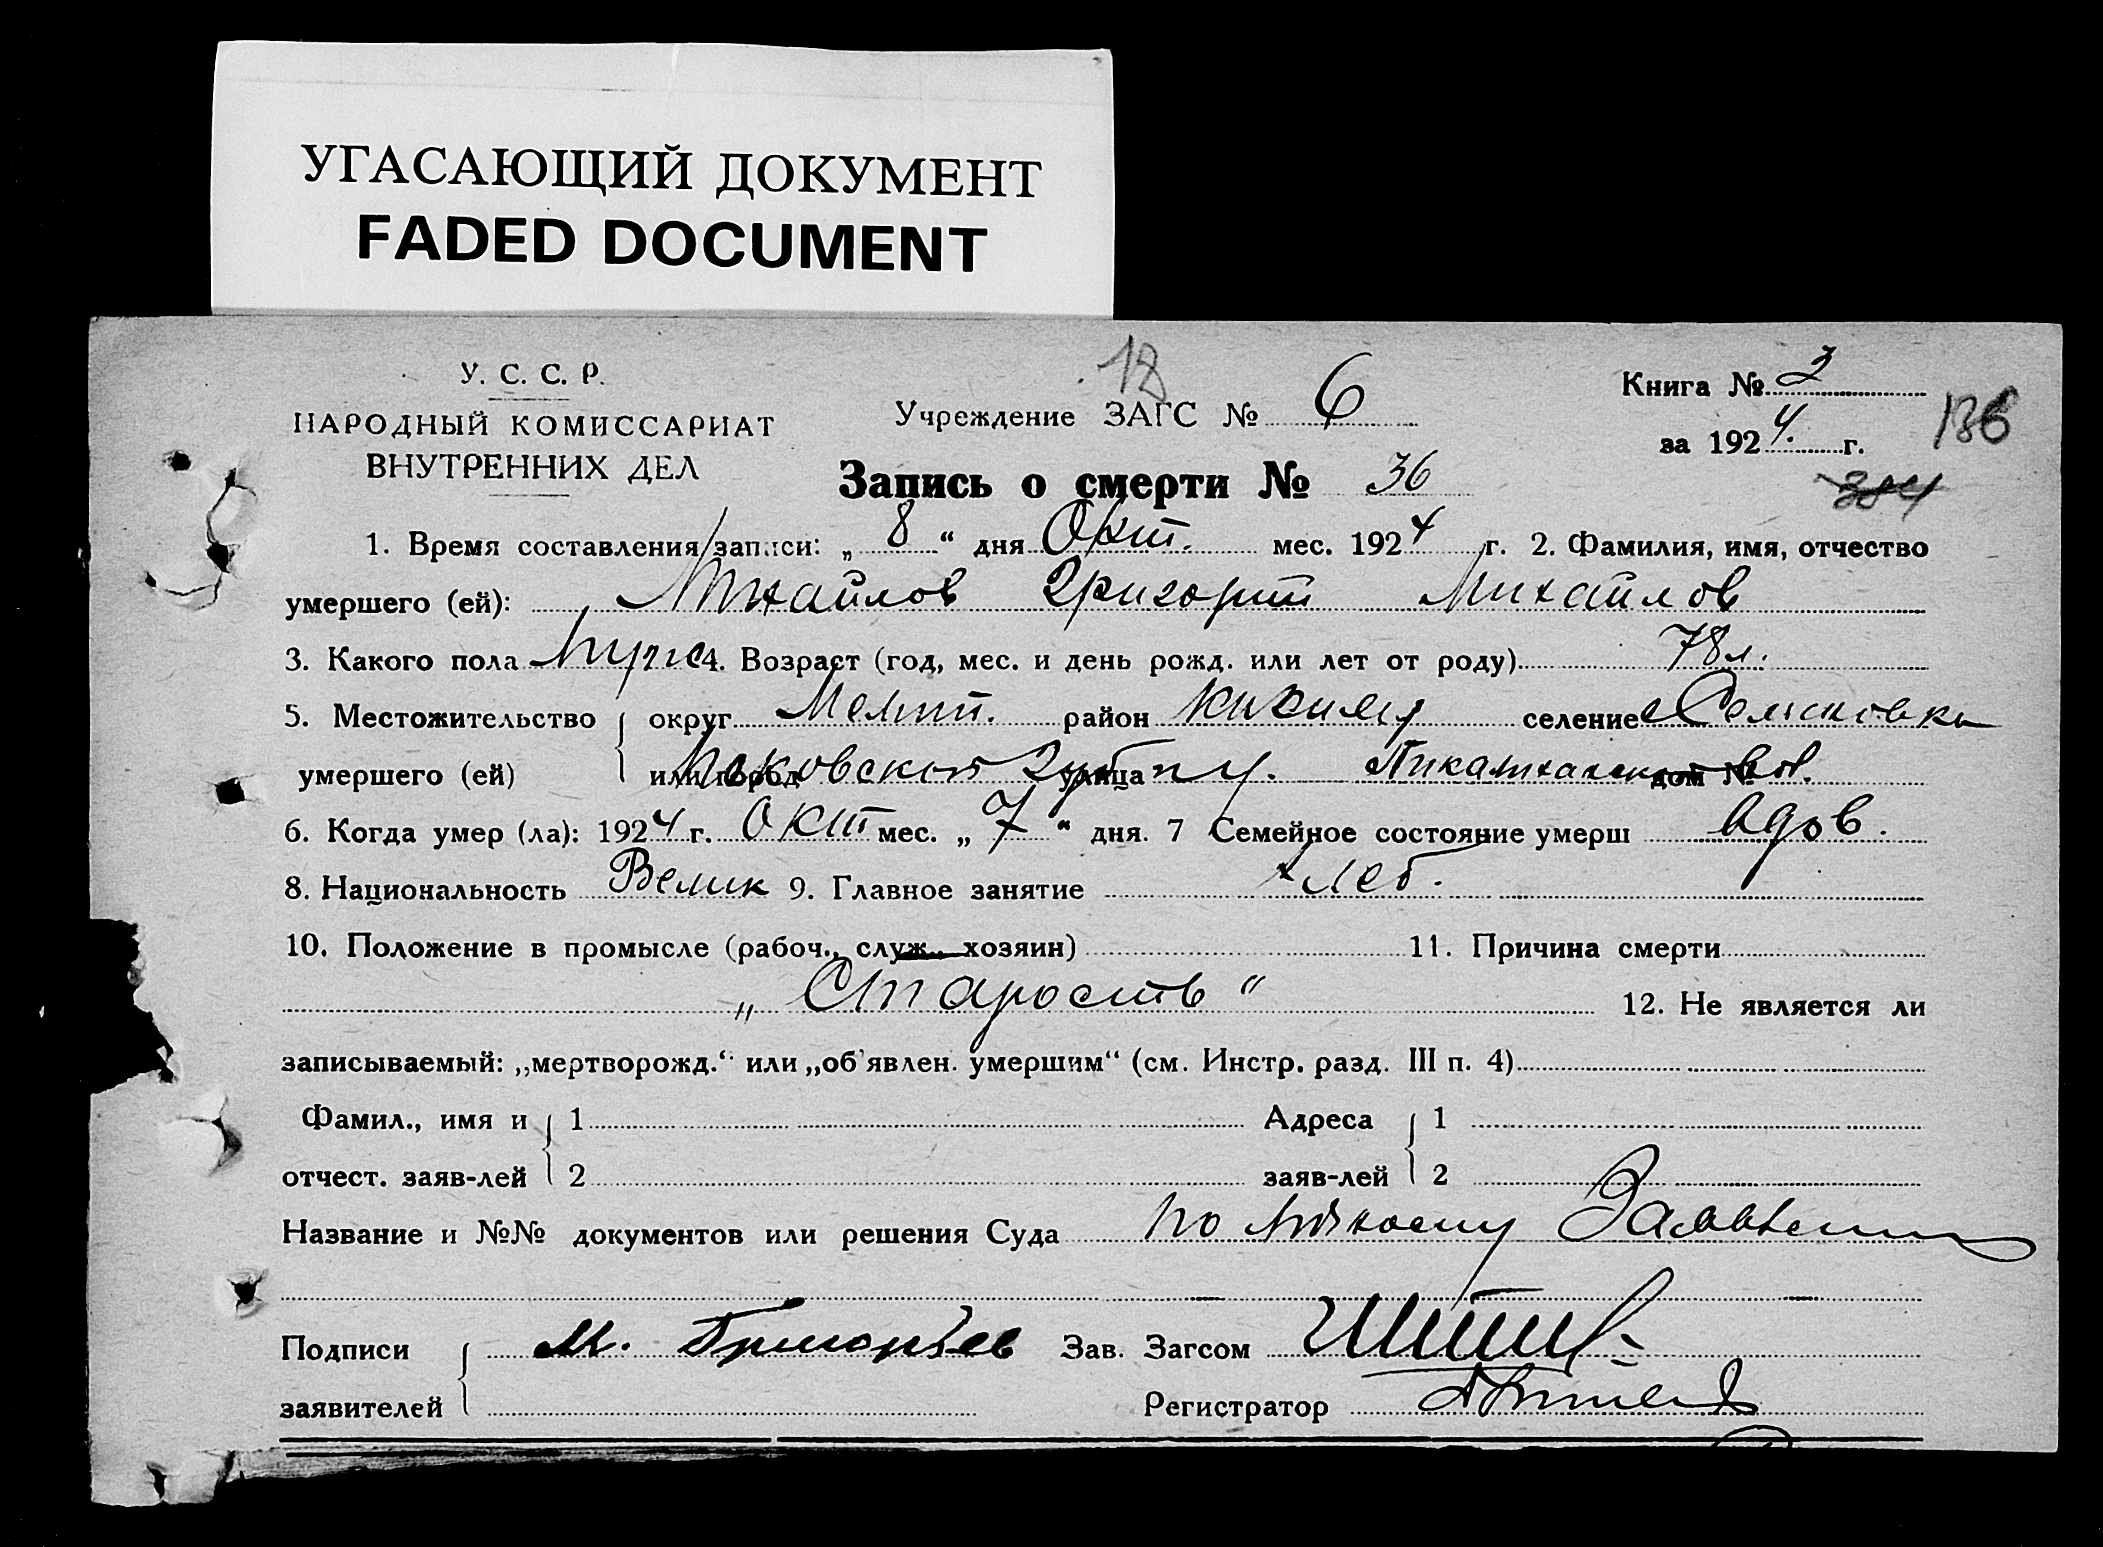 УГАСАЮЩИЙ ДОКУМЕНТ
FADED DOCUMENT
У. С. С. Р.
НАРОДНЫЙ КОМИССАРИАТ
ВНУТРЕННИХ ДЕЛ
18
Учреждение ЗАГС № 6
Книга № 3
за 1924 г.
186
384
Запись о смерти № 36
1. Время составления записи: „ 8 “ дня Окт. мес. 1924 г. 2. Фамилия, имя, отчество
умершего (ей): Михайлов Григорий Михайлов
3. Какого пола Муже 4. Возраст (год, мес. и день рожд. или лет от роду) 78 л.
5. Местожительство округ Мелит. район селение
умершего (ей) или город Псковской Губ улица дом №
6. Когда умер (ла): 1924 г. окт мес. „ 7 “ дня. 7 Семейное состояние умерш вдов.
8. Национальность Велик 9. Главное занятие хлеб.
10. Положение в промысле (рабоч., служ., хозяин) 11. Причина смерти
„ Старость “ 12. Не является ли
записываемый: „мертворожд.“ или „об'явлен. умершим“ (см. Инстр. разд. III п. 4)
Фамил., имя и 1 Адреса 1
отчест. заяв-лей 2 заяв-лей 2
Название и №№ документов или решения Суда по Личному
Подписи М. Григорьев Зав. Загсом
заявителей Регистратор